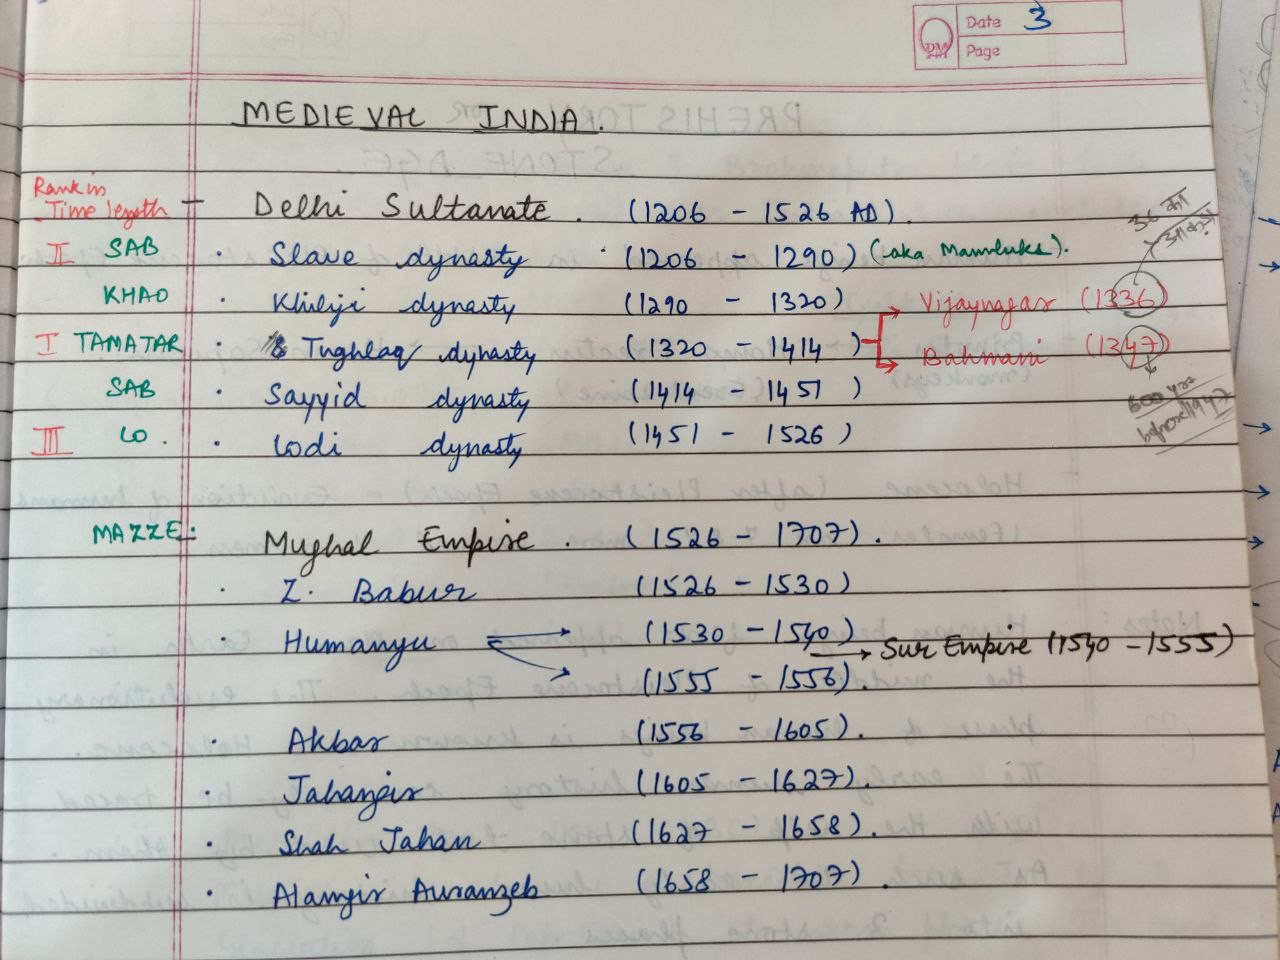 Date 3
Page
MEDIEVAL INDIA.
Rank in
Time length
Delhi Sultanate. (1206 - 1526 AD).
II SAB · Slave dynasty (1206 - 1290) (aka Mamluks).
KHAO · Khilji dynasty (1290 - 1320) Vijaynagar (1336)
I TAMATAR · Tughlaq dynasty (1320 - 1414) Bahmani (1347)
SAB · Sayyid dynasty (1414 - 1451)
600 yrs
before 1947
III LO. · Lodi dynasty (1451 - 1526)
MAZZE: Mughal Empire. (1526 - 1707).
· Z. Babur (1526 - 1530)
· Humanyu (1530 - 1540) → Sur Empire (1540 - 1555)
(1555 - 1556).
· Akbar (1556 - 1605).
· Jahangir (1605 - 1627).
· Shah Jahan (1627 - 1658).
· Alamgir Auranzeb (1658 - 1707).